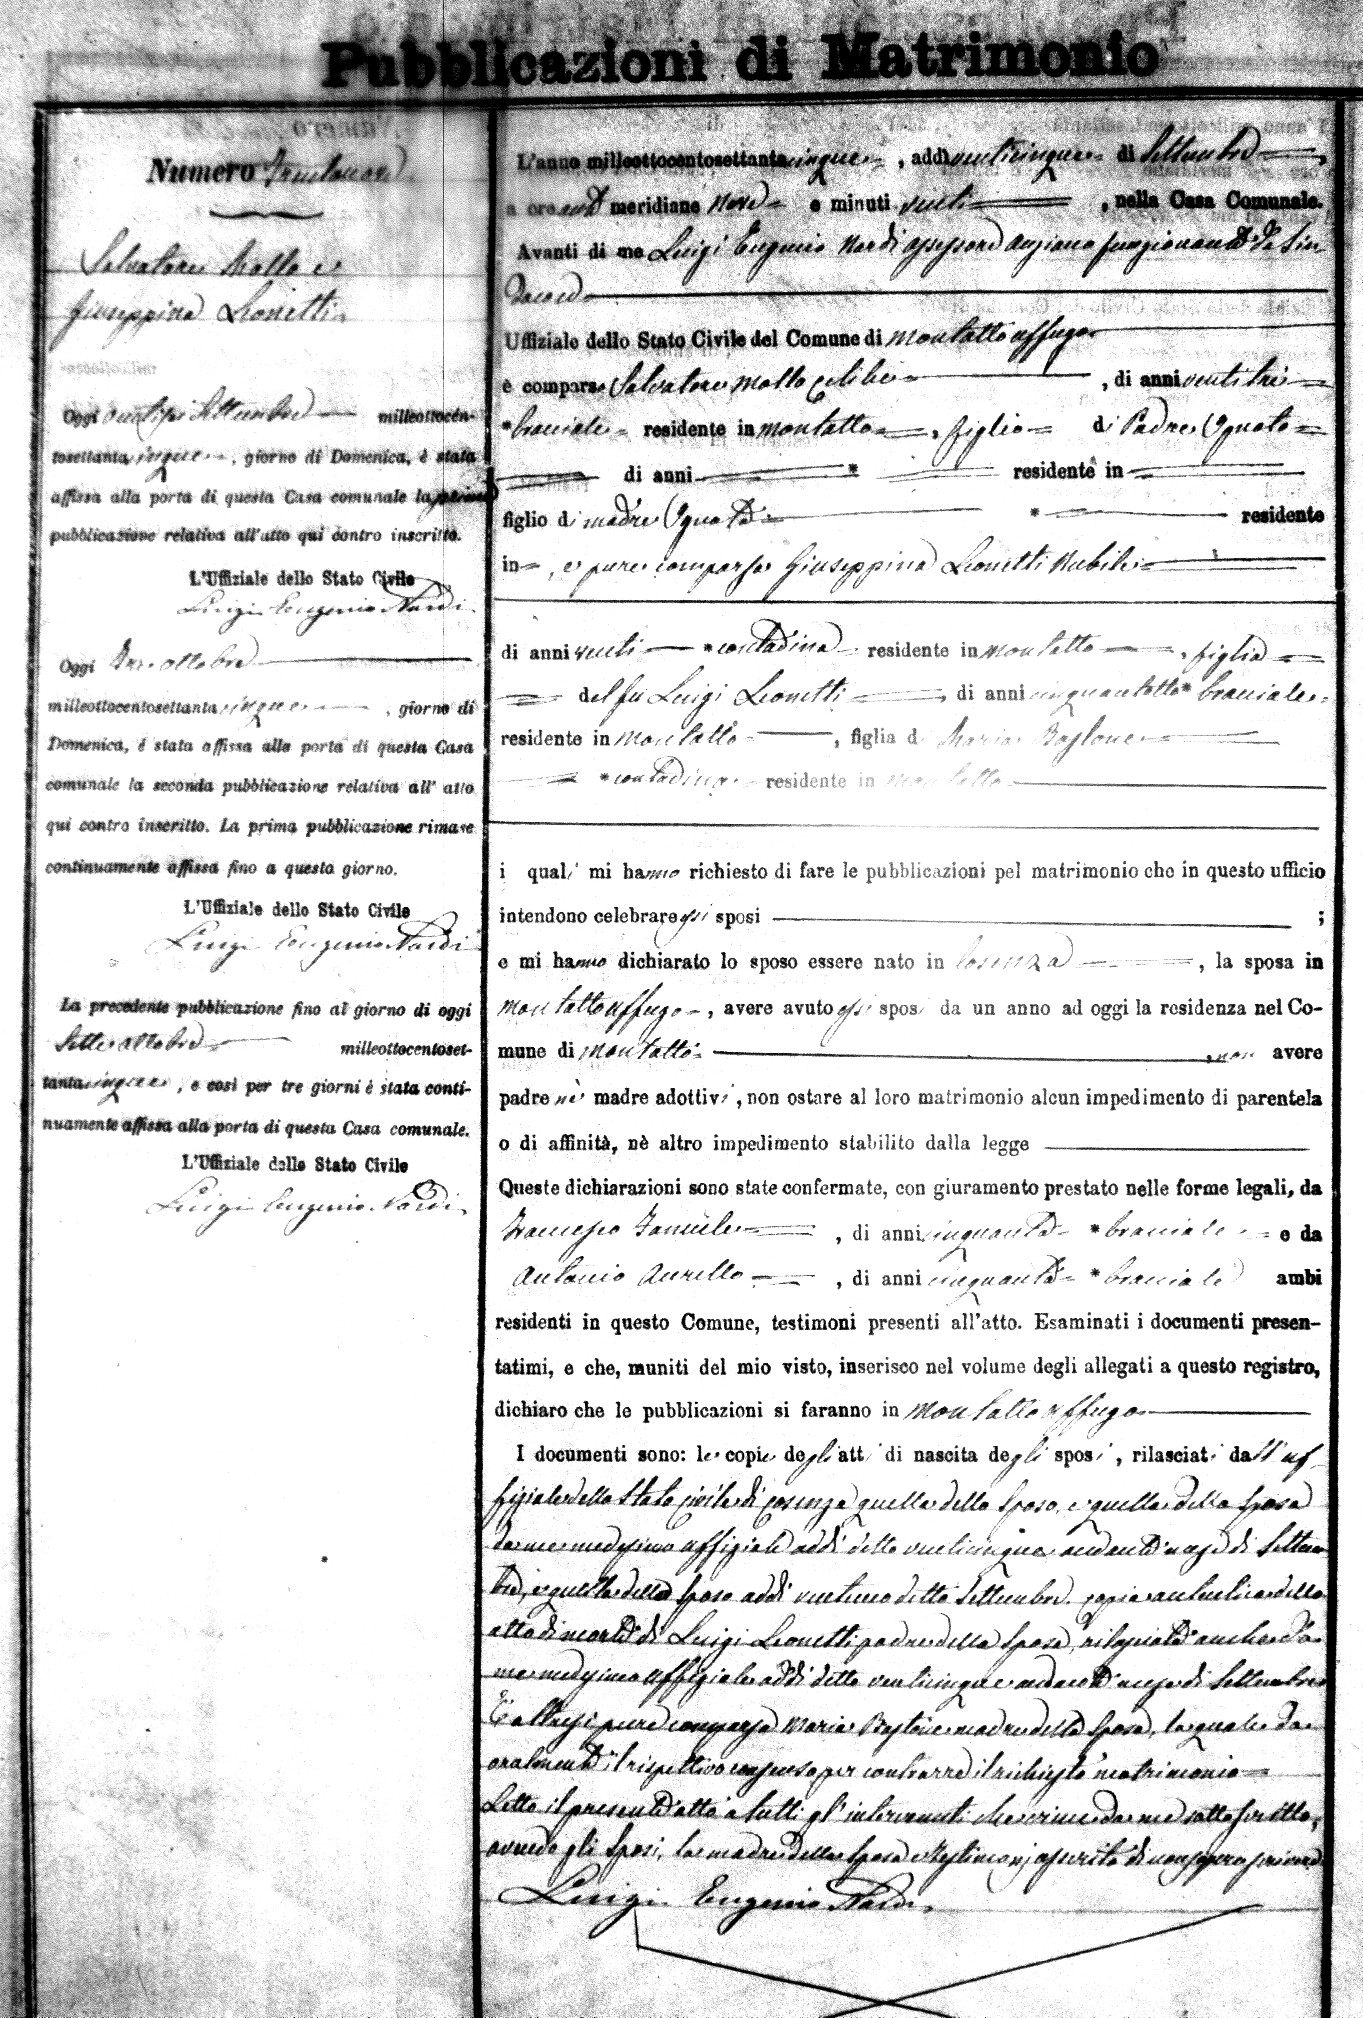 Pubblicazioni di Matrimonio
Numero Trentanove
Salvatore Mollo e
Giuseppina Lionetti
Oggi ventisei Settembre milleottocen-
tosettanta cinque, giorno di Domenica, è stata
affissa alla porta di questa Casa comunale la prima
pubblicazione relativa all'atto qui contro inscritto.
L'Uffiziale dello Stato Civile
Luigi Eugenio Nardi
Oggi Tre Ottobre
milleottocentosettanta cinque, giorno di
Domenica, è stata affissa alla porta di questa Casa
comunale la seconda pubblicazione relativa all' atto
qui contro inscritto. La prima pubblicazione rimase
continuamente affissa fino a questo giorno.
L'Uffiziale dello Stato Civile
Luigi Eugenio Nardi
La precedente pubblicazione fino al giorno di oggi
Sette Ottobre milleottocentoset-
tanta cinque, e così per tre giorni è stata conti-
nuamente affissa alla porta di questa Casa comunale.
L'Uffiziale dello Stato Civile
Luigi Eugenio Nardi
L'anno milleottocentosettanta cinque, addì venticinque di Settembre,
a ore ant meridiane Nove e minuti venti, nella Casa Comunale.
Avanti di me Luigi Eugenio Nardi assessore anziano funzionante da Sin
daco
Uffiziale dello Stato Civile del Comune di Montalto Uffugo
è comparso Salvatore Mollo celibe, di anni ventitrè
*bracciale residente in Montalto, figlio di Padre Ignoto
di anni * residente in
figlio di madre Ignota * residente
in, e pure comparsa Giuseppina Lionetti Nubile
di anni venti *contadina residente in Montalto, figlia
del fu Luigi Lionetti, di anni cinquantotto *bracciale
residente in Montalto, figlia di Maria Bastone
*contadina residente in Montalto
i quali mi hanno richiesto di fare le pubblicazioni pel matrimonio che in questo ufficio
intendono celebrare essi sposi ;
e mi hanno dichiarato lo sposo essere nato in Cosenza, la sposa in
Montalto Uffugo, avere avuto essi sposi da un anno ad oggi la residenza nel Co-
mune di Montalto, non avere
padre nè madre adottivi, non ostare al loro matrimonio alcun impedimento di parentela
o di affinità, nè altro impedimento stabilito dalla legge
Queste dichiarazioni sono state confermate, con giuramento prestato nelle forme legali, da
Francesco, di anni cinquanta *bracciale e da
Antonio Aurello, di anni cinquanta *bracciale ambi
residenti in questo Comune, testimoni presenti all'atto. Esaminati i documenti presen-
tatimi, e che, muniti del mio visto, inserisco nel volume degli allegati a questo registro,
dichiaro che le pubblicazioni si faranno in Montalto Uffugo
I documenti sono: le copie degli atti di nascita degli sposi, rilasciati dall'uf
fiziale dello Stato civile di Cosenza quella dello Sposo, e quella della Sposa
da me medesimo uffiziale addì detto venticinque andante mese di Settem
bre, e quella dello Sposo addì ventuno detto Settembre. copia autentica dello
atto di morte di Luigi Lionetti padre della Sposa, rilasciata anche da
me medesimo uffiziale addì detto venticinque andante mese di Settembre
È altresì pure comparsa Maria Bastone madre della Sposa, la quale da
oralmente il rispettivo consenso per contrarre il richiesto matrimonio
Letto il presente atto a tutti gl'intervenuti che viene da me sottoscritto,
avendo gli Sposi, la madre della Sposa e testimonj asserito di non sapere scrivere
Luigi Eugenio Nardi